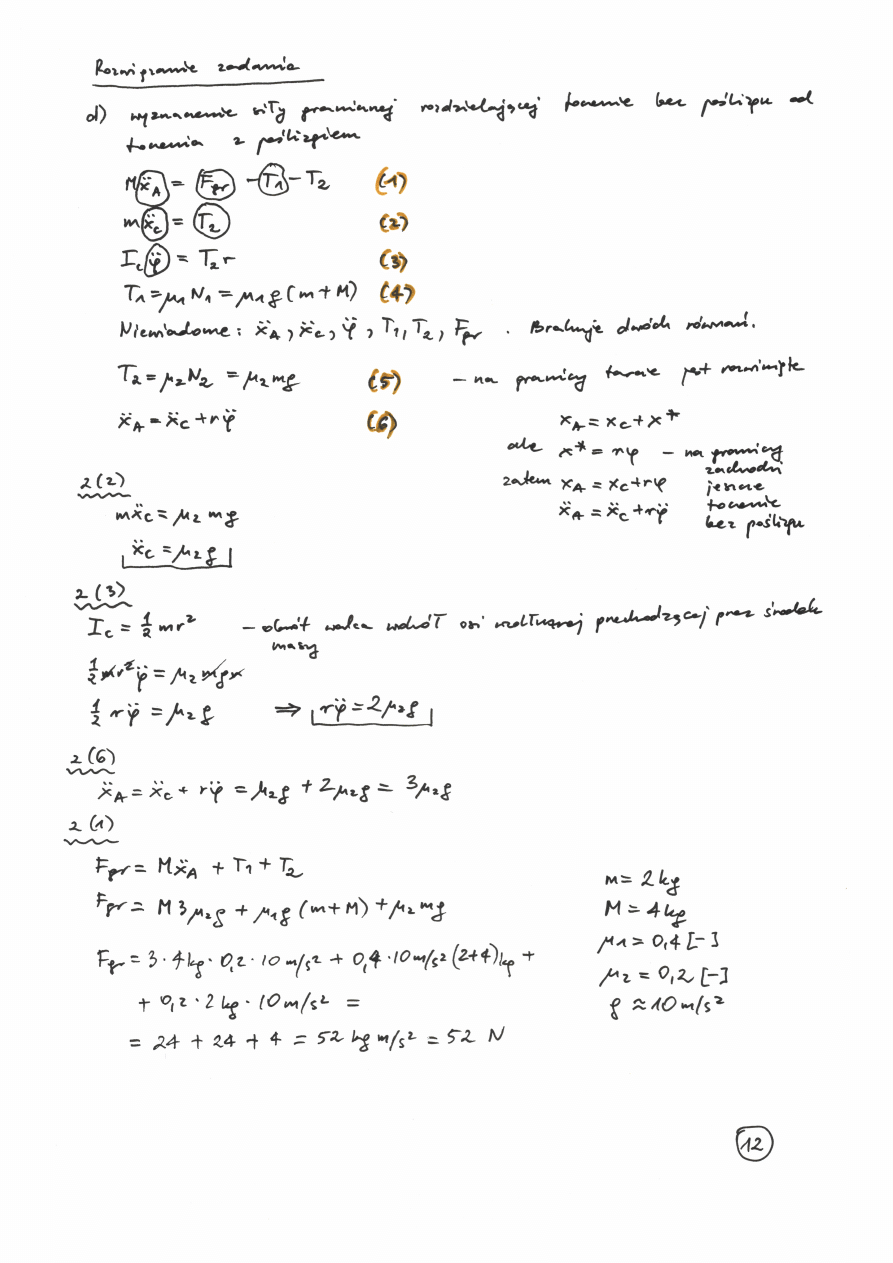 Rozwiązanie zadania
d) wyznaczenie siły granicznej rozdzielającej toczenie bez poślizgu od
toczenia z poślizgiem
Mẍ_A = F_gr - T₁ - T₂ (1)
mẍ_c = T₂ (2)
I_c φ̈ = T₂r (3)
T₁ = μ₁N₁ = μ₁g(m+M) (4)
Niewiadome: ẍ_A, ẍ_c, φ̈, T₁, T₂, F_gr. Brakuje dwóch równań.
T₂ = μ₂N₂ = μ₂mg (5) – na granicy tarcie jest rozwinięte
ẍ_A = ẍ_C + rφ̈ (6)
x_A = x_C + x*
ale x* = rφ – na granicy
zachodzi
zatem x_A = x_C + rφ jeszcze
ẍ_A = ẍ_C + rφ̈ toczenie
bez poślizgu
z (2)
mẍ_C = μ₂mg
ẍ_C = μ₂g
z (3)
I_c = ½mr² – obrót walca wokół osi wzdłużnej przechodzącej przez środek
masy
½mr²φ̈ = μ₂mgr
½rφ̈ = μ₂g ⇒ rφ̈ = 2μ₂g
z (6)
ẍ_A = ẍ_c + rφ̈ = μ₂g + 2μ₂g = 3μ₂g
z (1)
F_gr = Mẍ_A + T₁ + T₂
F_gr = M3μ₂g + μ₁g(m+M) + μ₂mg
F_gr = 3·4kg·0,2·10m/s² + 0,4·10m/s²(2+4)kg +
+ 0,2·2kg·10m/s² =
= 24 + 24 + 4 = 52 kg m/s² = 52 N
m = 2kg
M = 4kg
μ₁ = 0,4 [-]
μ₂ = 0,2 [-]
g ≈ 10m/s²
12